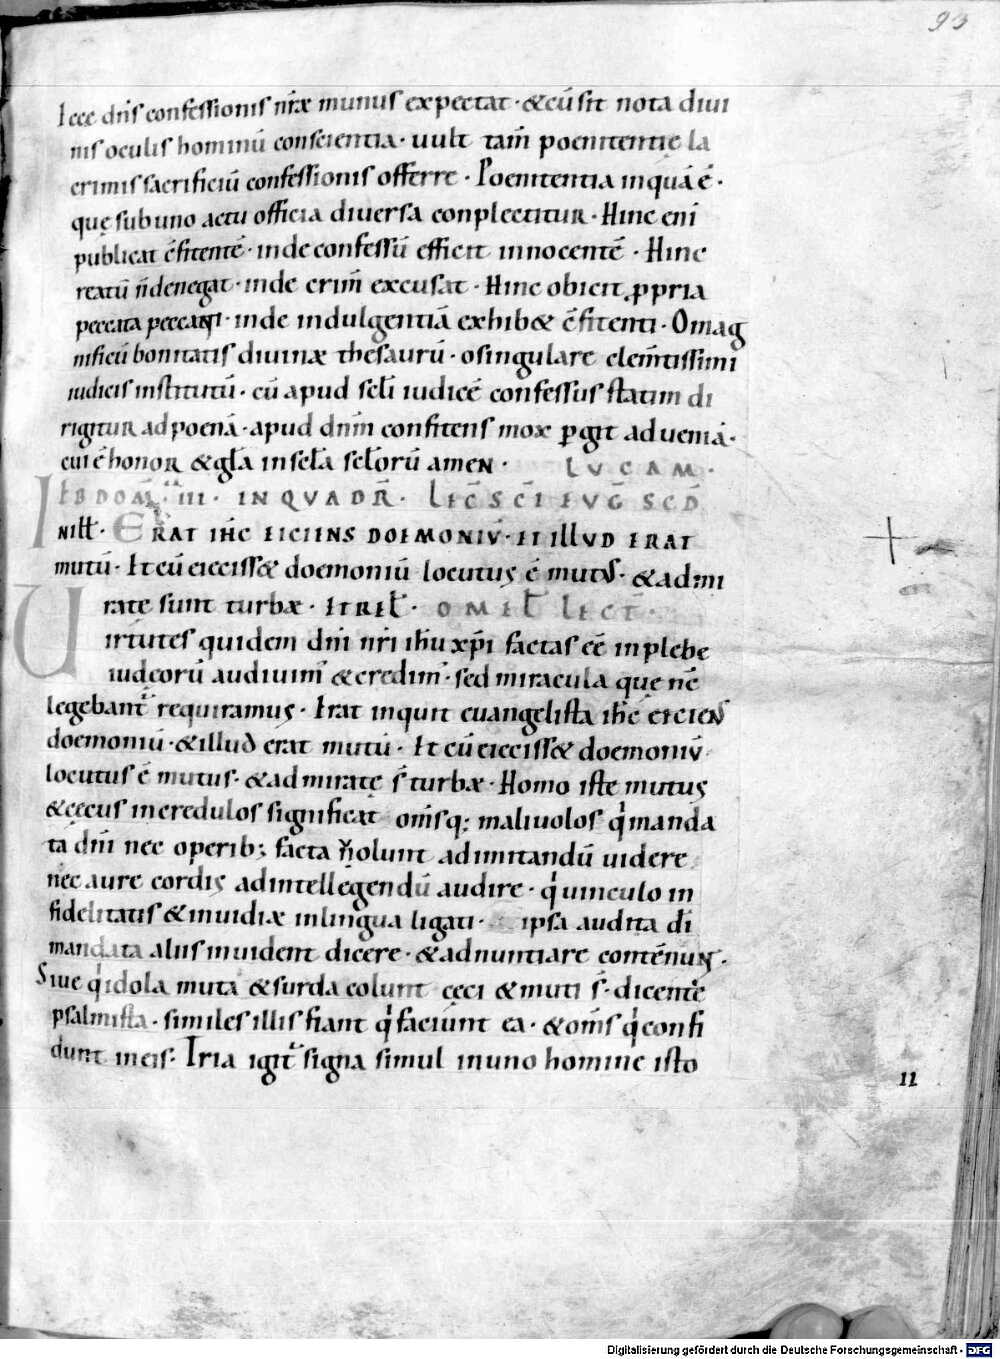 93
Licet dn̄s confessionis nr̄æ munus expectat · & cū sit nota diui
nis oculis hominū conscientia · uult tam̄ poenitentię la
crimis sacrificiū confessionis offerre · Poenitentia inquā ē ·
quę sub uno actu officia diuersa conplectitur · Hinc eni
publicat c̄fitentē · inde confessū efficit innocentē · Hinc
reatū n̄ denegat · inde crim̄ excusat · Hinc obicit ꝓpria
peccata peccanti · inde indulgentiā exhib& c̄fitenti · O mag
nificū bonitatis diuinæ thesaurū · o singulare clem̄tissimi
iudicis institutū · cū apud scl̄i iudicē confessus statim di
rigitur ad poenā · apud dn̄m confitens mox ꝑgit ad ueniā ·
cui ē honor & gl̄a in scl̄a scl̄orū amen · LVCAM ·
EBDOM̄ · III · IN QVADR̄ · LEC̄ SC̄I EVG̅ SCD̄
Nill̄ · ERAT IH̄C EICIENS DOEMONIV̄ · ET ILLVD ERAT
mutū · Et cū eieciss& doemoniū locutus ē mutus · & admi
ratę sunt turbæ · ET REL̄ · OMEL̄ LECT̄ ·
Uirtutes quidem dn̄i nr̄i ih̄u xp̄i factas eē in plebe
iudęorū audiuim̄ & credim̄ · sed miracula que nc̄
legebant̄ requiramus · Erat inquit euangelista ih̄c eiciens
doemoniū · & illud erat mutū · Et cū eieciss& doemoniū
locutus ē mutus · & admiratę s̄ turbæ · Homo iste mutus
& cęcus incredulos significat om̄sq; maliuolos q̇ manda
ta dn̄i nec operib; facta n̄olunt ad imitandū uidere
nec aure cordis ad intellegendū audire · q̇ uinculo in
fidelitatis & inuidiæ in lingua ligati · ipsa audita dī
mandata aliis inuident dicere · & adnuntiare contēnunt ·
Siue q̇ idola muta & surda colunt cęci & muti s̄ · dicente
psalmista · similes illis fiant q̇ faciunt ea · & om̄s q̇ confi
dunt in eis · Tria igit̄ signa simul in uno homine isto
II
Digitalisierung gefördert durch die Deutsche Forschungsgemeinschaft - DFG